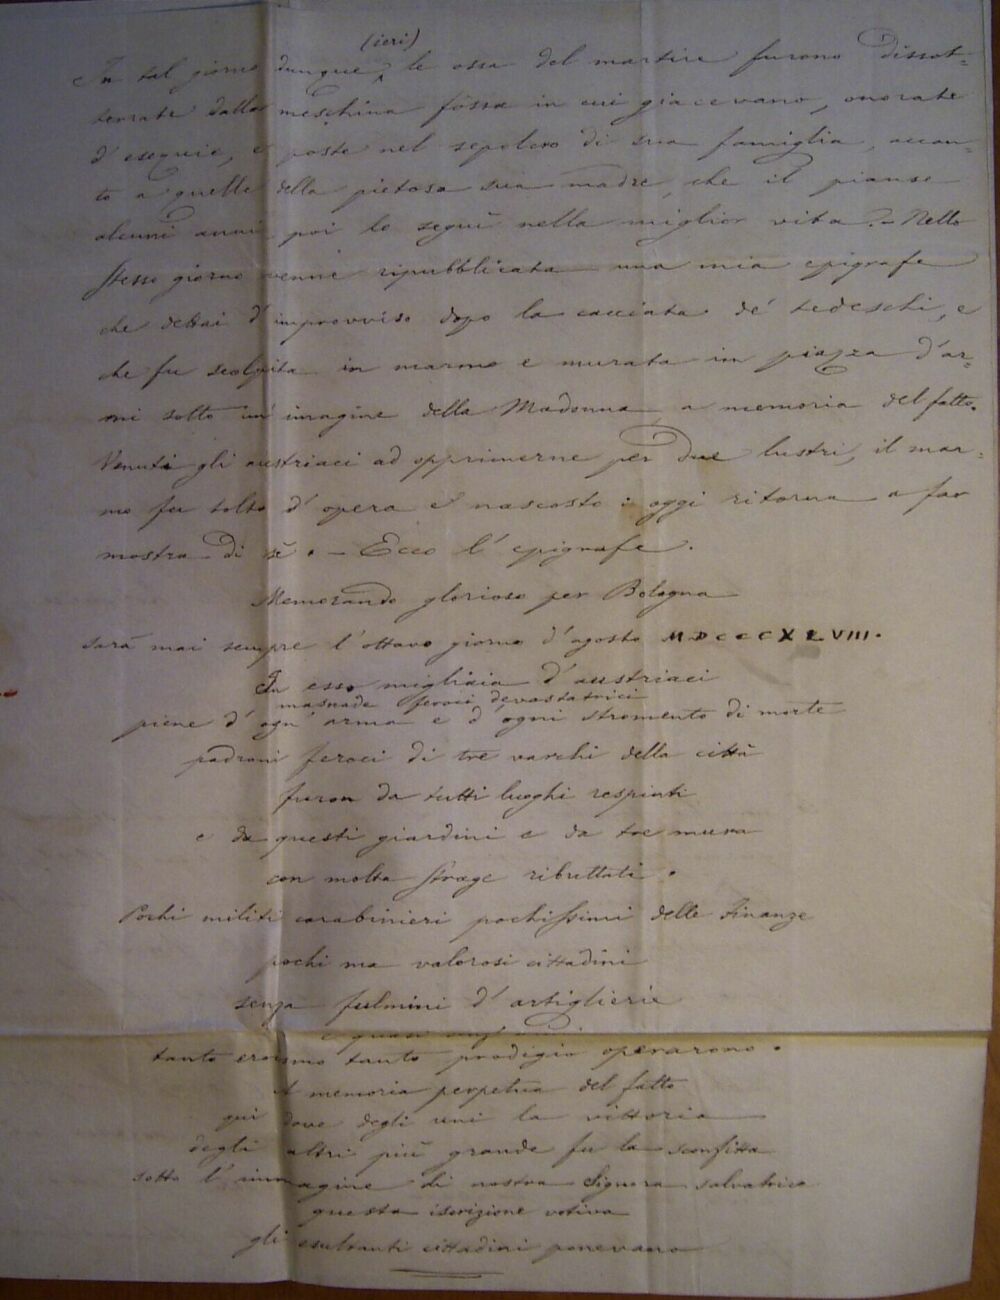 (ieri)
In tal giorno dunque, le ossa del martire furono dissot=
terrate dalla meschina fossa in cui giacevano, onorate
d'esequie, e poste nel sepolcro di sua famiglia, accan=
to a quelle della pietosa sua madre che il pianse
alcuni anni poi lo seguì nella miglior vita. - Nello
stesso giorno venne ripubblicata una mia epigrafe
che dettai d'improvviso dopo la cacciata de' tedeschi, e
che fu scolpita in marmo e murata in piazza d'ar=
mi sotto un'imagine della Madonna a memoria del fatto.
Venuti gli austriaci ad opprimerne per due lustri, il mar=
mo fu tolto d'opera e nascosto: oggi ritorna a far
mostra di sè. - Ecco l'epigrafe.
Memorando glorioso per Bologna
sarà mai sempre l'ottavo giorno d'agosto MDCCCXLVIII.
In esso migliaia d'austriaci
masnade feroci devastatrici
piene d'ogn'arma e d'ogni stromento di morte
padroni feroci di tre varchi della città
furon da tutti luoghi respinti
e da questi giardini e da tre mura
con molta strage ributtati.
Pochi militi carabinieri pochissimi delle Finanze
pochi ma valorosi cittadini
senza fulmini d'artiglierie
e quasi
tanto eroismo tanto prodigio operarono.
A memoria perpetua del fatto
qui dove degli uni la vittoria
degli altri più grande fu la sconfitta
sotto l'immagine di nostra Signora salvatrice
questa iscrizione votiva
gli esultanti cittadini ponevano